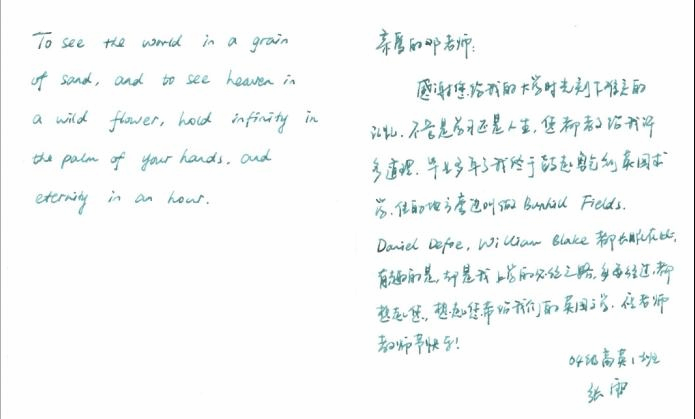 To see the world in a grain
of sand, and to see heaven in
a wild flower, hold infinity in
the palm of your hands, and
eternity in an hour.
亲爱的邓老师:
感谢您给我的大学时光刻下难忘的
记忆. 不管是学习还是人生, 您都教给我许
多道理. 毕业多年了我终于鼓起勇气到英国求
学. 住的地方旁边叫做 Bunhill Fields.
Daniel Defoe, William Blake 都长眠在此,
有趣的是, 却是我上学的必经之路, 每每经过, 都
想起您, 想起您带给我们的英国文学. 祝老师
教师节快乐!
04级高英1班
张雷